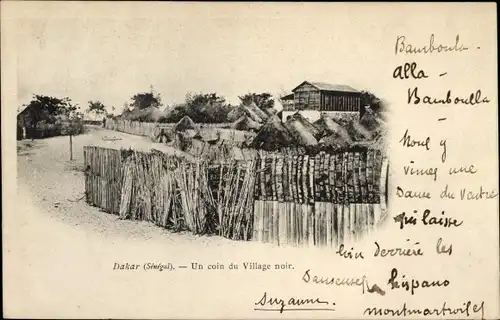 Bamboula
Alla -
Bamboulla -
Nous y
vimes une
danse du ventre
qui laisse
loin derrière les
Danseuses hispano
montmartroises
Suzanne
Dakar (Sénégal). — Un coin du Village noir.